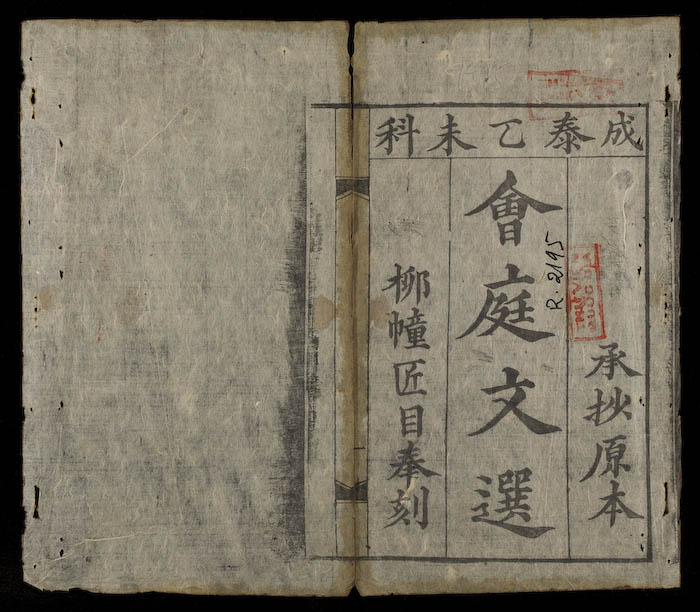 成泰乙未科
承抄原本
會庭文選
柳幢匠目奉刻
R.2195